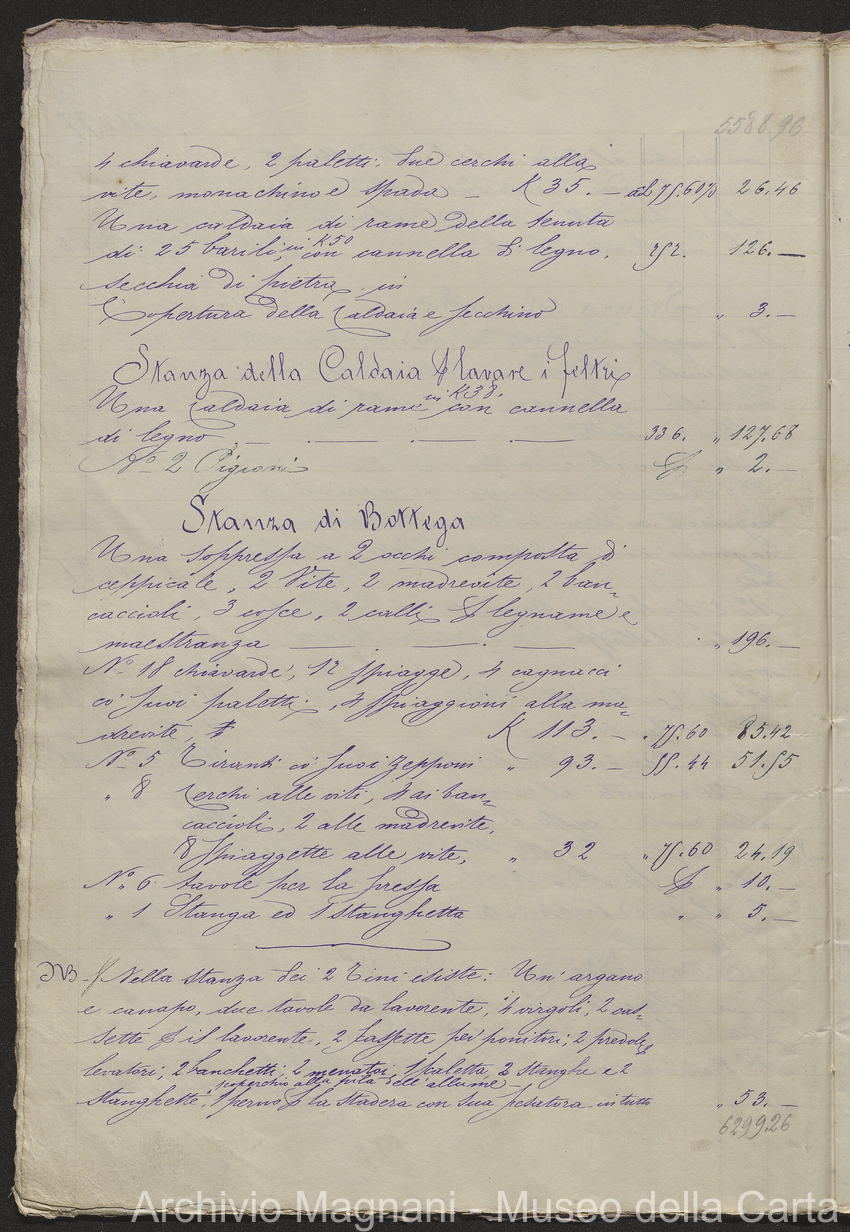 5588.96
4 chiavarde, 2 paletti, due cerchi alla
vite, monachino e spada - K 35. - al 75.60% 26.46
Una caldaia di rame della tenuta
di 25 barili, in K 50 con cannella di legno, 252. 126. —
secchia di pietra in
Copertura della Caldaia e secchino „ 3. -
Stanza della Caldaia p lavare i feltri
Una Caldaia di rame in K 38. con cannella
di legno . — . — . — . — 336. „ 127.68
No 2 Pigioni p „ 2. -
Stanza di Bottega
Una soppressa a 2 occhi composta di
ceppicale, 2 Vite, 2 madrevite, 2 ban-
caccioli, 3 cosce, 2 calli p legname e
maestranza — . — . — „ 196. -
No 18 chiavarde, 12 spiagge, 4 cagnacci
co' suoi paletti, 4 spiaggioni alla ma-
drevite, K 113. - „ 75.60 85.42
No 5 Tiranti co' suoi Zepponi „ 93. - 55.44 51.55
„ 8 Cerchi alle viti, 4 ai ban-
caccioli, 2 alle madrevite,
8 spiaggette alle vite, „ 32 „ 75.60 24.19
No 6 tavole per la pressa p „ 10. -
„ 1 Stanga ed 1 stanghetta „ „ 5. -
NB Nella stanza dei 2 Tini esiste: Un' argano
e canapo, due tavole da lavorente, 4 virgoli, 2 cas-
sette p il lavorente, 2 cassette pei ponitori; 2 predole
levatori; 2 banchetti; 2 menatoi, 1 scaletta, 2 stanghe e 2
coperchio alla pila dell' allume -
stanghette, 1 perno p la stadera con sua pesatura in tutto „ 53. -
6299.26
Archivio Magnani - Museo della Carta